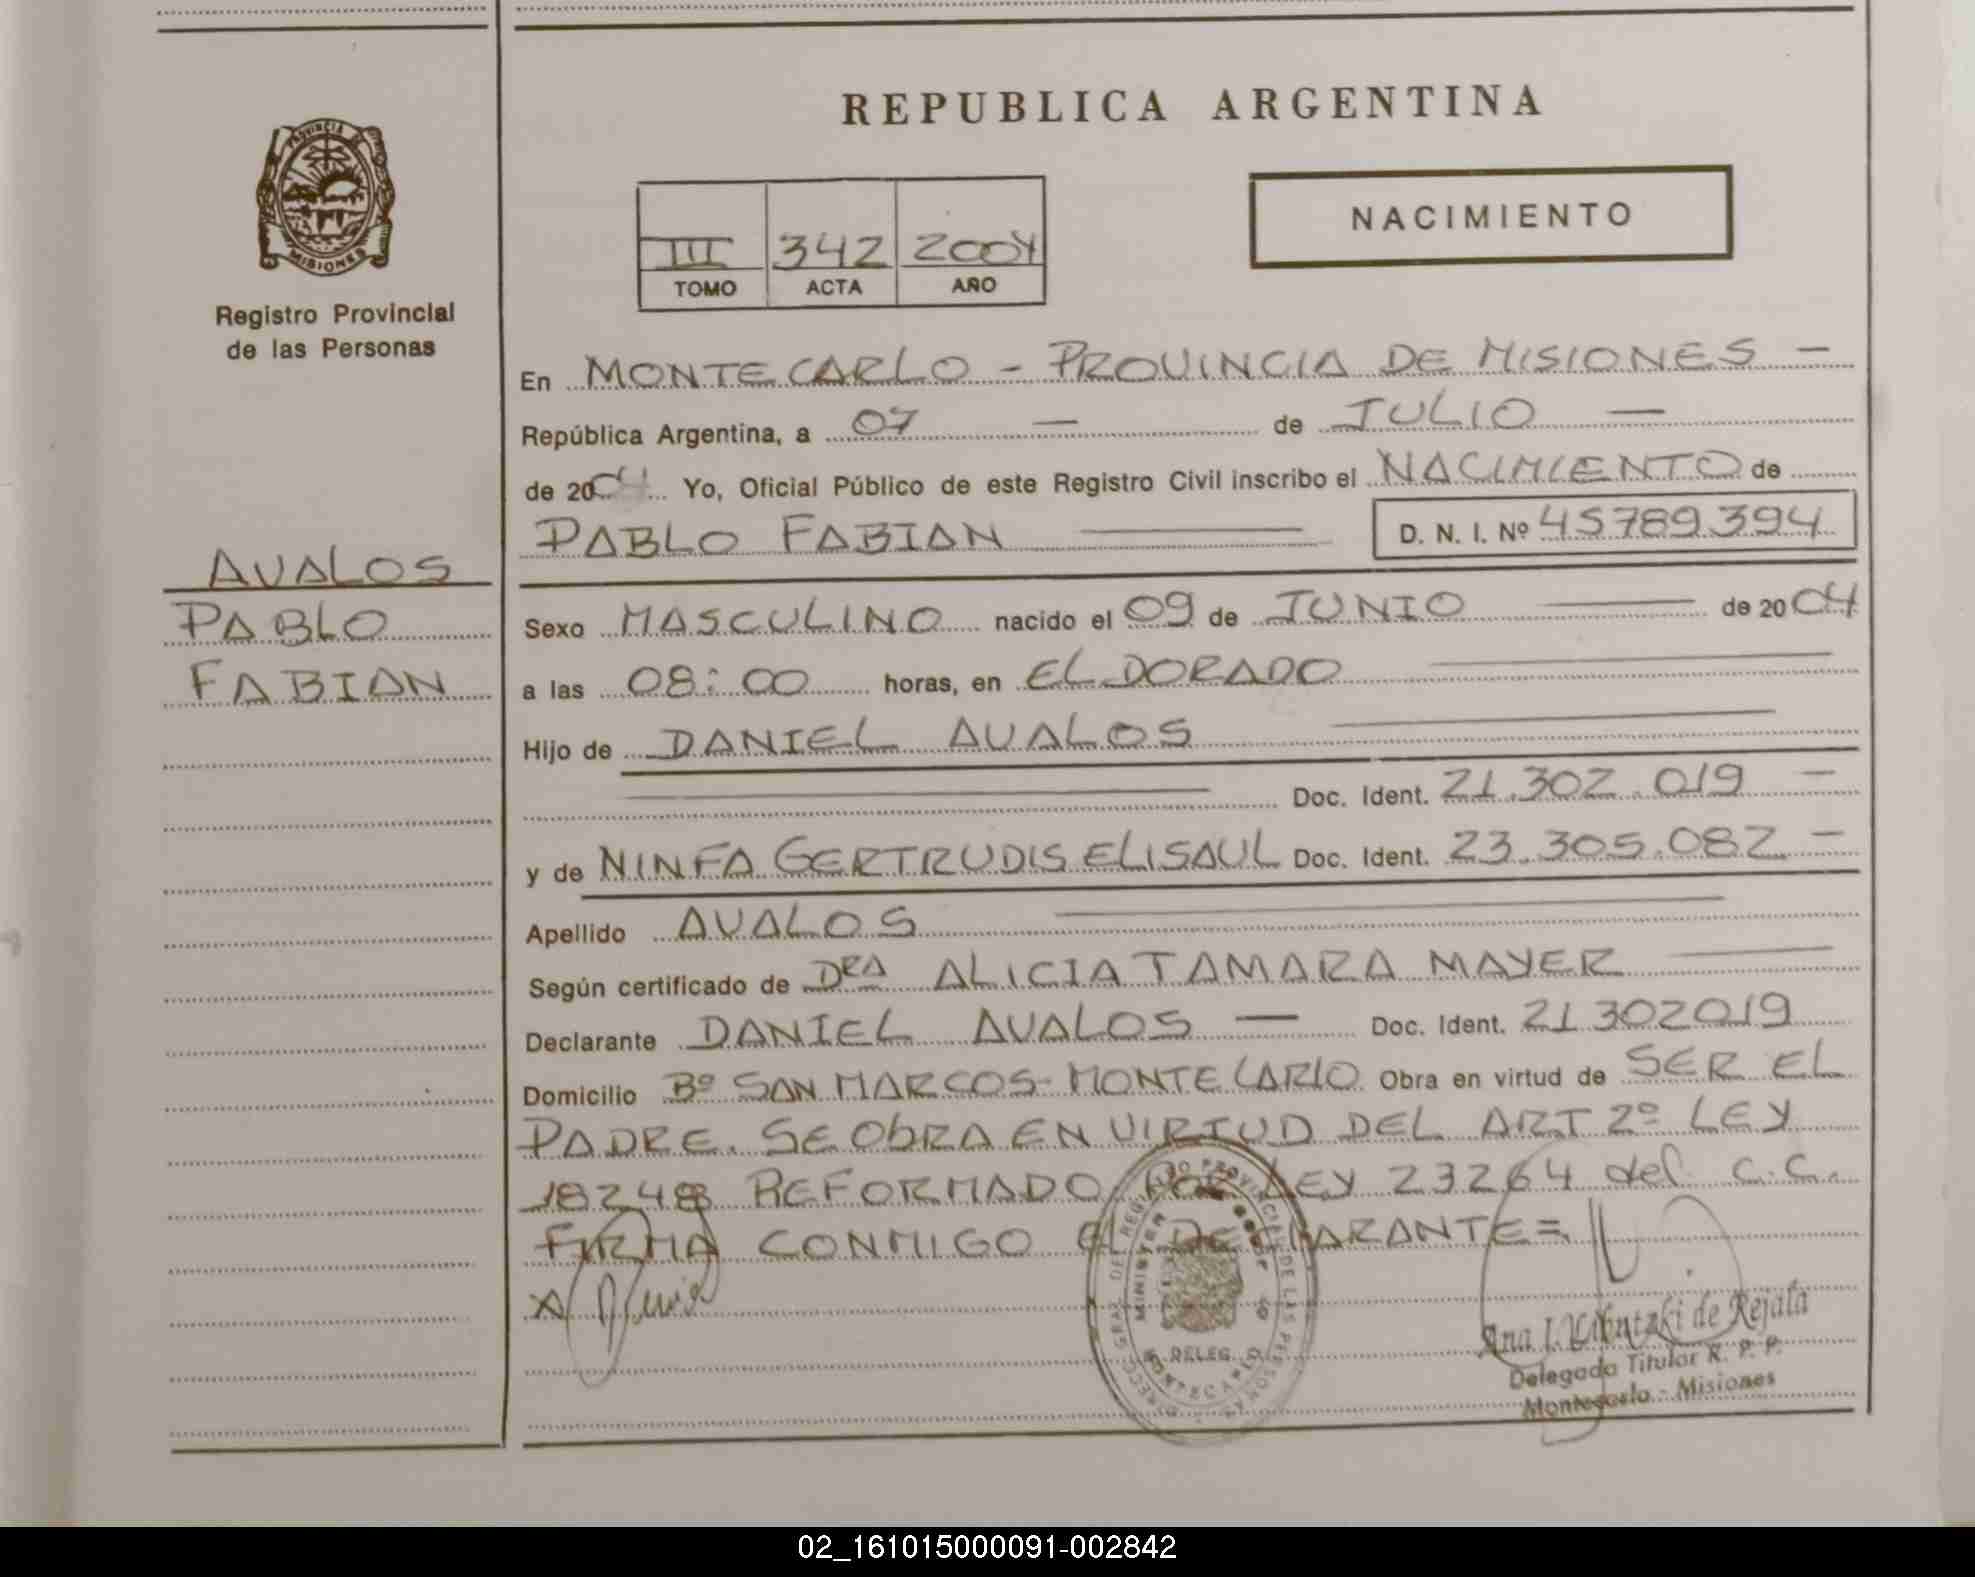 REPUBLICA ARGENTINA
PROVINCIA DE
MISIONES
Registro Provincial
de las Personas
NACIMIENTO
III 342 2004
TOMO ACTA AÑO
En MONTECARLO - PROVINCIA DE MISIONES -
República Argentina, a 07 — de JULIO —
de 2004 Yo, Oficial Público de este Registro Civil inscribo el NACIMIENTO de
PABLO FABIAN — D. N. I. Nº 45789394
AVALOS
PABLO
FABIAN
Sexo MASCULINO nacido el 09 de JUNIO — de 2004
a las 08:00 horas, en ELDORADO —
Hijo de DANIEL AVALOS —
— Doc. Ident. 21.302.019 —
y de NINFA GERTRUDIS ELISAUL Doc. Ident. 23.305.082 —
Apellido AVALOS —
Según certificado de DRA ALICIA TAMARA MAYER —
Declarante DANIEL AVALOS — Doc. Ident. 21302019
Domicilio Bº SAN MARCOS - MONTECARLO Obra en virtud de SER EL
PADRE. SE ObRA EN VIRTUD DEL ART 2º LEY
18248 REFORMADO POR LEY 23264 del C.C.
FIRMA CONMIGO EL DECLARANTE =
X
DELEG.
MONTECARLO
Ana I. de Rejala
Delegada Titular R. P. P.
Montecarlo - Misiones
02_161015000091-002842